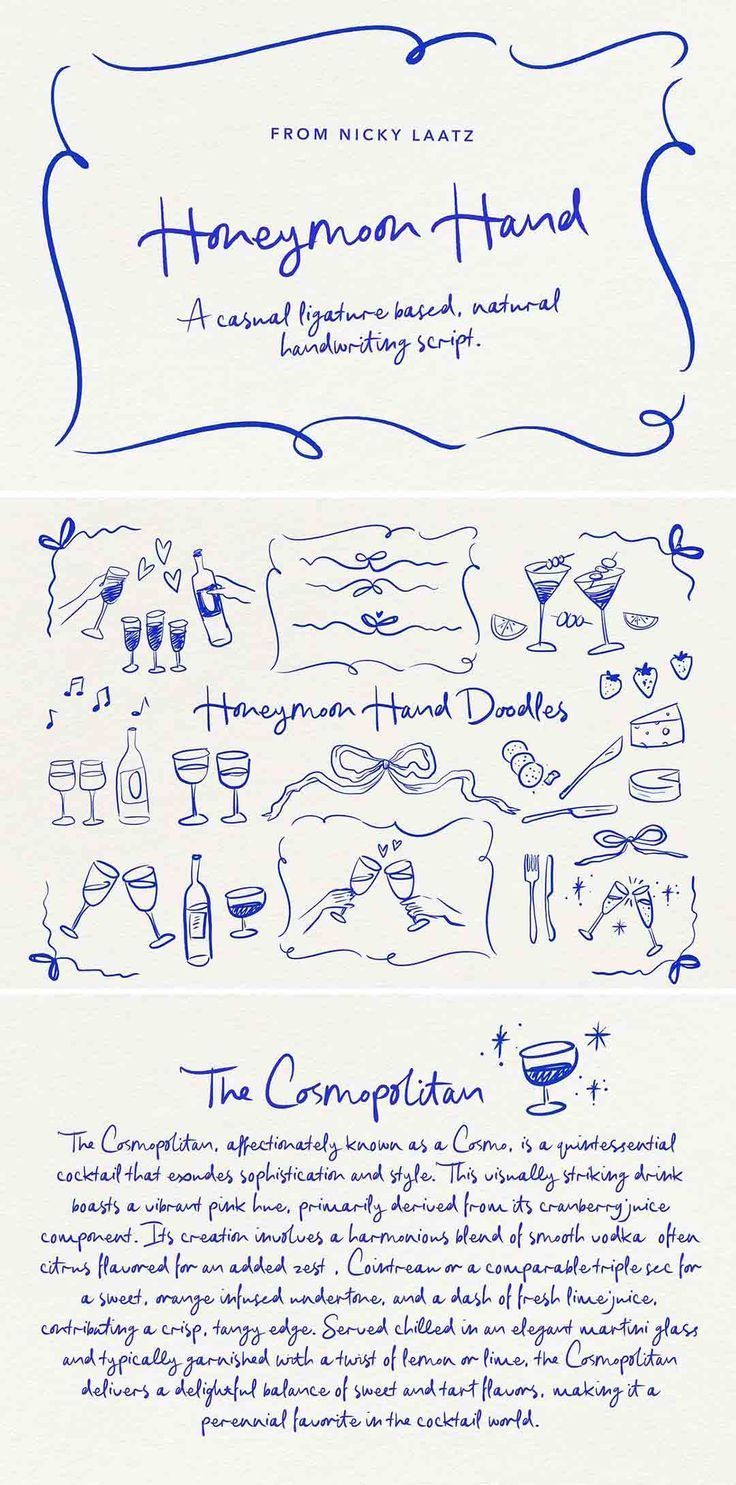 FROM NICKY LAATZ
Honeymoon Hand
A casual ligature based, natural
handwriting script.
Honeymoon Hand Doodles
The Cosmopolitan
The Cosmopolitan, affectionately known as a Cosmo, is a quintessential
cocktail that exudes sophistication and style. This visually striking drink
boasts a vibrant pink hue, primarily derived from its cranberry juice
component. Its creation involves a harmonious blend of smooth vodka often
citrus flavored for an added zest , Cointreau or a comparable triple sec for
a sweet, orange infused undertone, and a dash of fresh lime juice,
contributing a crisp, tangy edge. Served chilled in an elegant martini glass
and typically garnished with a twist of lemon or lime, the Cosmopolitan
delivers a delightful balance of sweet and tart flavors, making it a
perennial favorite in the cocktail world.